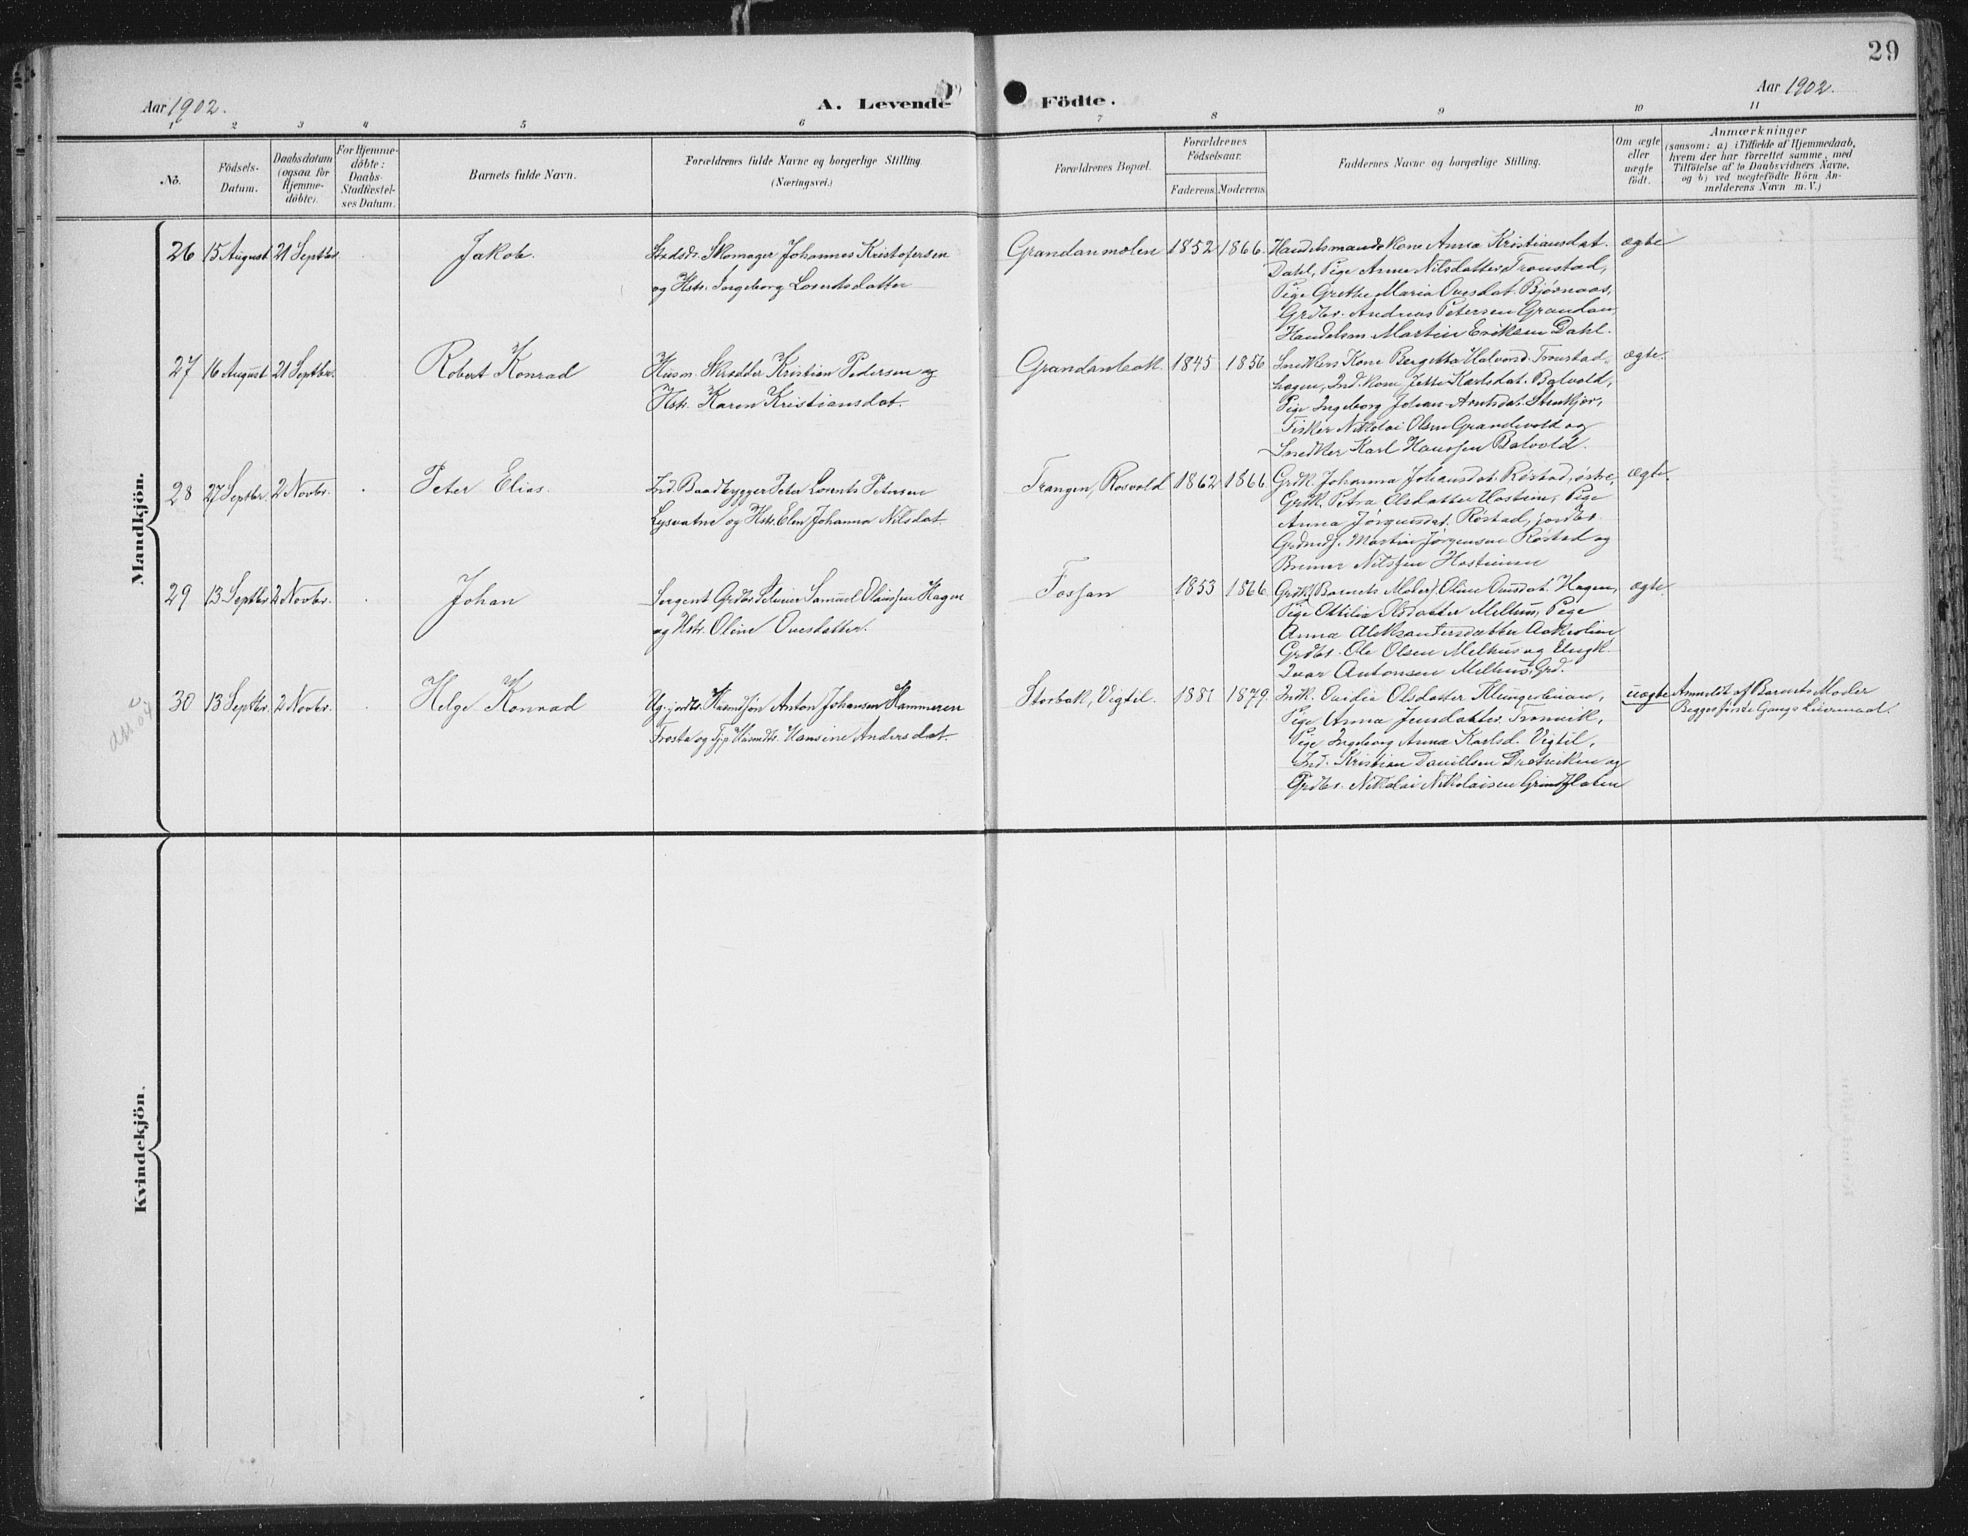 29
Aar 1902.
A. Levende Födte.
Aar 1902.
1 2 3 4 5 6 7 8 9 10 11
No.
Födsels-
Datum.
Daabsdatum
(ogsaa for
Hjemme-
döbte).
For Hjemme-
döbte:
Daabs-
Stadfæstel-
ses Datum.
Barnets fulde Navn.
Forældrenes fulde Navne og borgerlige Stilling
(Næringsvei.)
Forældrenes Bopæl.
Forældrenes
Födselsaar.
Faderens. Moderens.
Faddernes Navne og borgerlige Stilling.
Om ægte
eller
uægte
födt.
Anmærkninger
(saasom: a) i Tilfælde af Hjemmedaab,
hvem der har forrettet samme, med
Tilföielse af to Daabsvidners Navne.
og b) ved uægtefödte Börn An-
melderens Navn m. V.)
Mandkjön.
26 15 August 21 Septbr. Jakob.
Skomager Johannes Kristofersen
og Hstr. Ingeborg Lorentsdatter
Grandanmolen 1852 1866.
Handelsmands Kone Anna Kristiansdat.
Dahl, Pige Anna Nilsdatter Tronstad,
Pige Grethe Maria Ovesdat. Bjørnaas,
Grdbr. Andreas Petersen Grandan,
Handelsm. Martin Eriksen Dahl.
ægte
27 16 August 21 Septbr. Robert Konrad
Husm. Skrædder Kristian Pedersen og
Hstr. Karen Kristiansdat.
Grandanbak. 1845 1856
Snedkers Kone Bergetta Halvorsd. Tronstad-
hagen, Ind. kone Jette Karlsdat. Balvold,
Pige Ingeborg Johan Arntsdat. Stenkjær,
Fisker Nikolai Olsen Grandevold og
Snedker Karl Hanssen Balvold.
ægte.
28 27 Septbr. 2 Novbr. Peter Elias.
Ind. Baadbygger Peter Lorents Petersen
Lysvatne og Hstr. Elen Johanna Nilsdat.
Trangen, Rosvold 1862 1866
Grdk. Johanna Johansdat. Røstad, østre,
Grdk. Petra Olsdatter Hostein, Pige
Anna Jørgensdat. Røstad,
Martin Jørgensen Røstad og
Nilssen Hosteinen
ægte.
29 13 Septbr. 2 Novbr. Johan
Sergent Grdbr. Samuel Olaissen Hagen
og Hstr. Oline Ovesdatter.
Fossan 1853 1866.
Grdk. (Barnets Moder) Oline Ovesdat. Hagen,
Pige Ottilia Olsdatter Melhus, Pige
Anna Aleksandersdatter
Grdbr. Ole Olsen Melhus og Ungk.
Ivar Antonsen Melhus, Grd.
ægte.
30 13 Septbr. 2 Novbr. Helge Konrad
Ug. Husmdsøn Anton Johansen Hammeren
Frosta og Husmdtr. Hansine Andersdat.
Storbak, Vigtil. 1881 1879.
Indk. Olsdatter
Pige Anna Jensdatter Tronvik,
Pige Ingeborg Anna Karlsd. Vigtil,
Ind. Kristian Danielsen og
Grdbr. Nikolai Nikolaisen Grindflaten
uægte
Anmeldt af Barnets Moder
Begges første Gangs Leiermaal.
Kvindekjön.